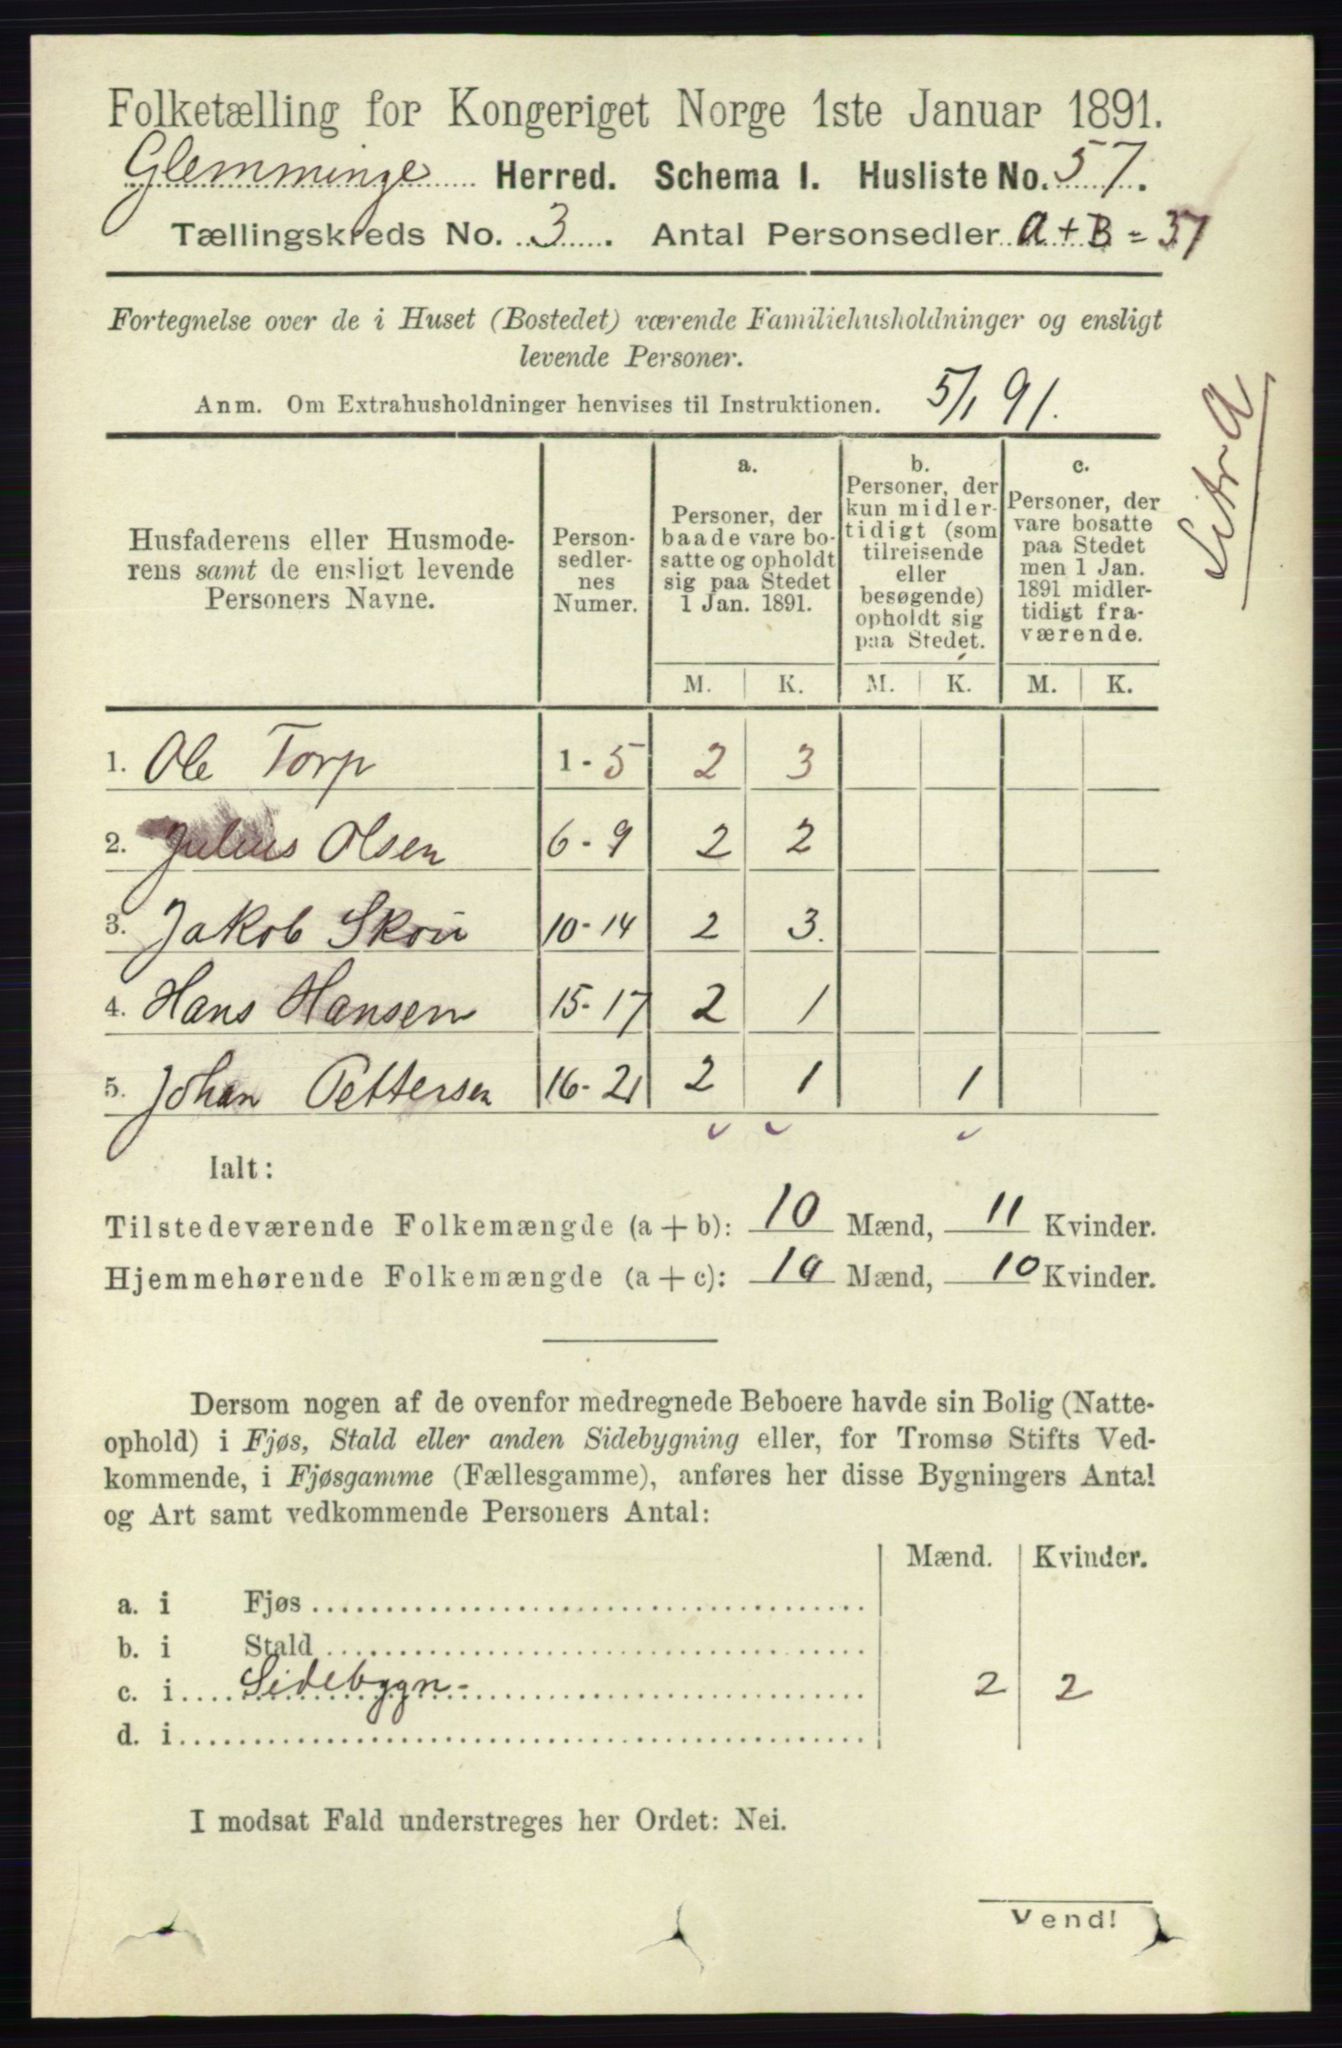 Folketælling for Kongeriget Norge 1ste Januar 1891.
Glemminge Herred. Schema I. Husliste No. 57.
Tællingskreds No. 3. Antal Personsedler A + B = 37
Fortegnelse over de i Huset (Bostedet) værende Familiehusholdninger og ensligt
levende Personer.
Anm. Om Extrahusholdninger henvises til Instruktionen. 5/1 91.
Litr A
Husfaderens eller Husmode-
rens samt de ensligt levende
Personers Navne.
Person-
sedler-
nes
Numer.
a.
Personer, der
baade vare bo-
satte og opholdt
sig paa Stedet
1 Jan. 1891.
b.
Personer, der
kun midler-
tidigt (som
tilreisende
eller
besøgende)
opholdt sig
paa Stedet.
c.
Personer, der
vare bosatte
paa Stedet
men 1 Jan.
1891 midler-
tidigt fra-
værende.
M. K. M. K. M. K.
1. Ole Torp 1 - 5 2 3
2. Julius Olsen 6 - 9 2 2
3. Jakob Skou 10 - 14 2 3.
4. Hans Hansen 15 - 17 2 1
5. Johan Pettersen 16 - 21 2 1 1
Ialt:
Tilstedeværende Folkemængde (a + b): 10 Mænd, 11 Kvinder.
Hjemmehørende Folkemængde (a + c): 10 Mænd, 10 Kvinder.
Dersom nogen af de ovenfor medregnede Beboere havde sin Bolig (Natte-
ophold) i Fjøs, Stald eller anden Sidebygning eller, for Tromsø Stifts Ved-
kommende, i Fjøsgamme (Fællesgamme), anføres her disse Bygningers Antal
og Art samt vedkommende Personers Antal:
Mænd. Kvinder.
a. i Fjøs
b. i Stald
c. i Sidebygn- 2 2
d. i
I modsat Fald understreges her Ordet: Nei.
Vend!